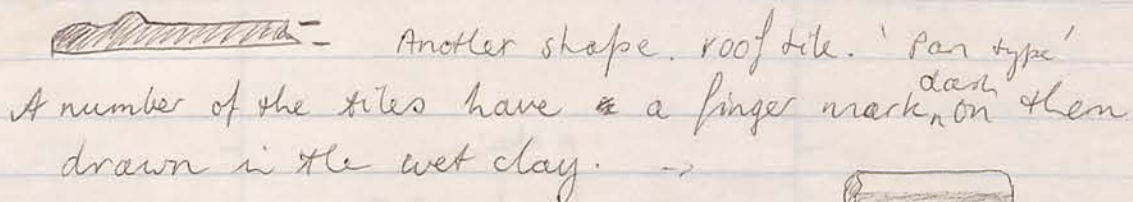 Another shape. roof tile. 'Pan type'
A number of the tiles have a finger mark dash on them
drawn in the wet clay. ->